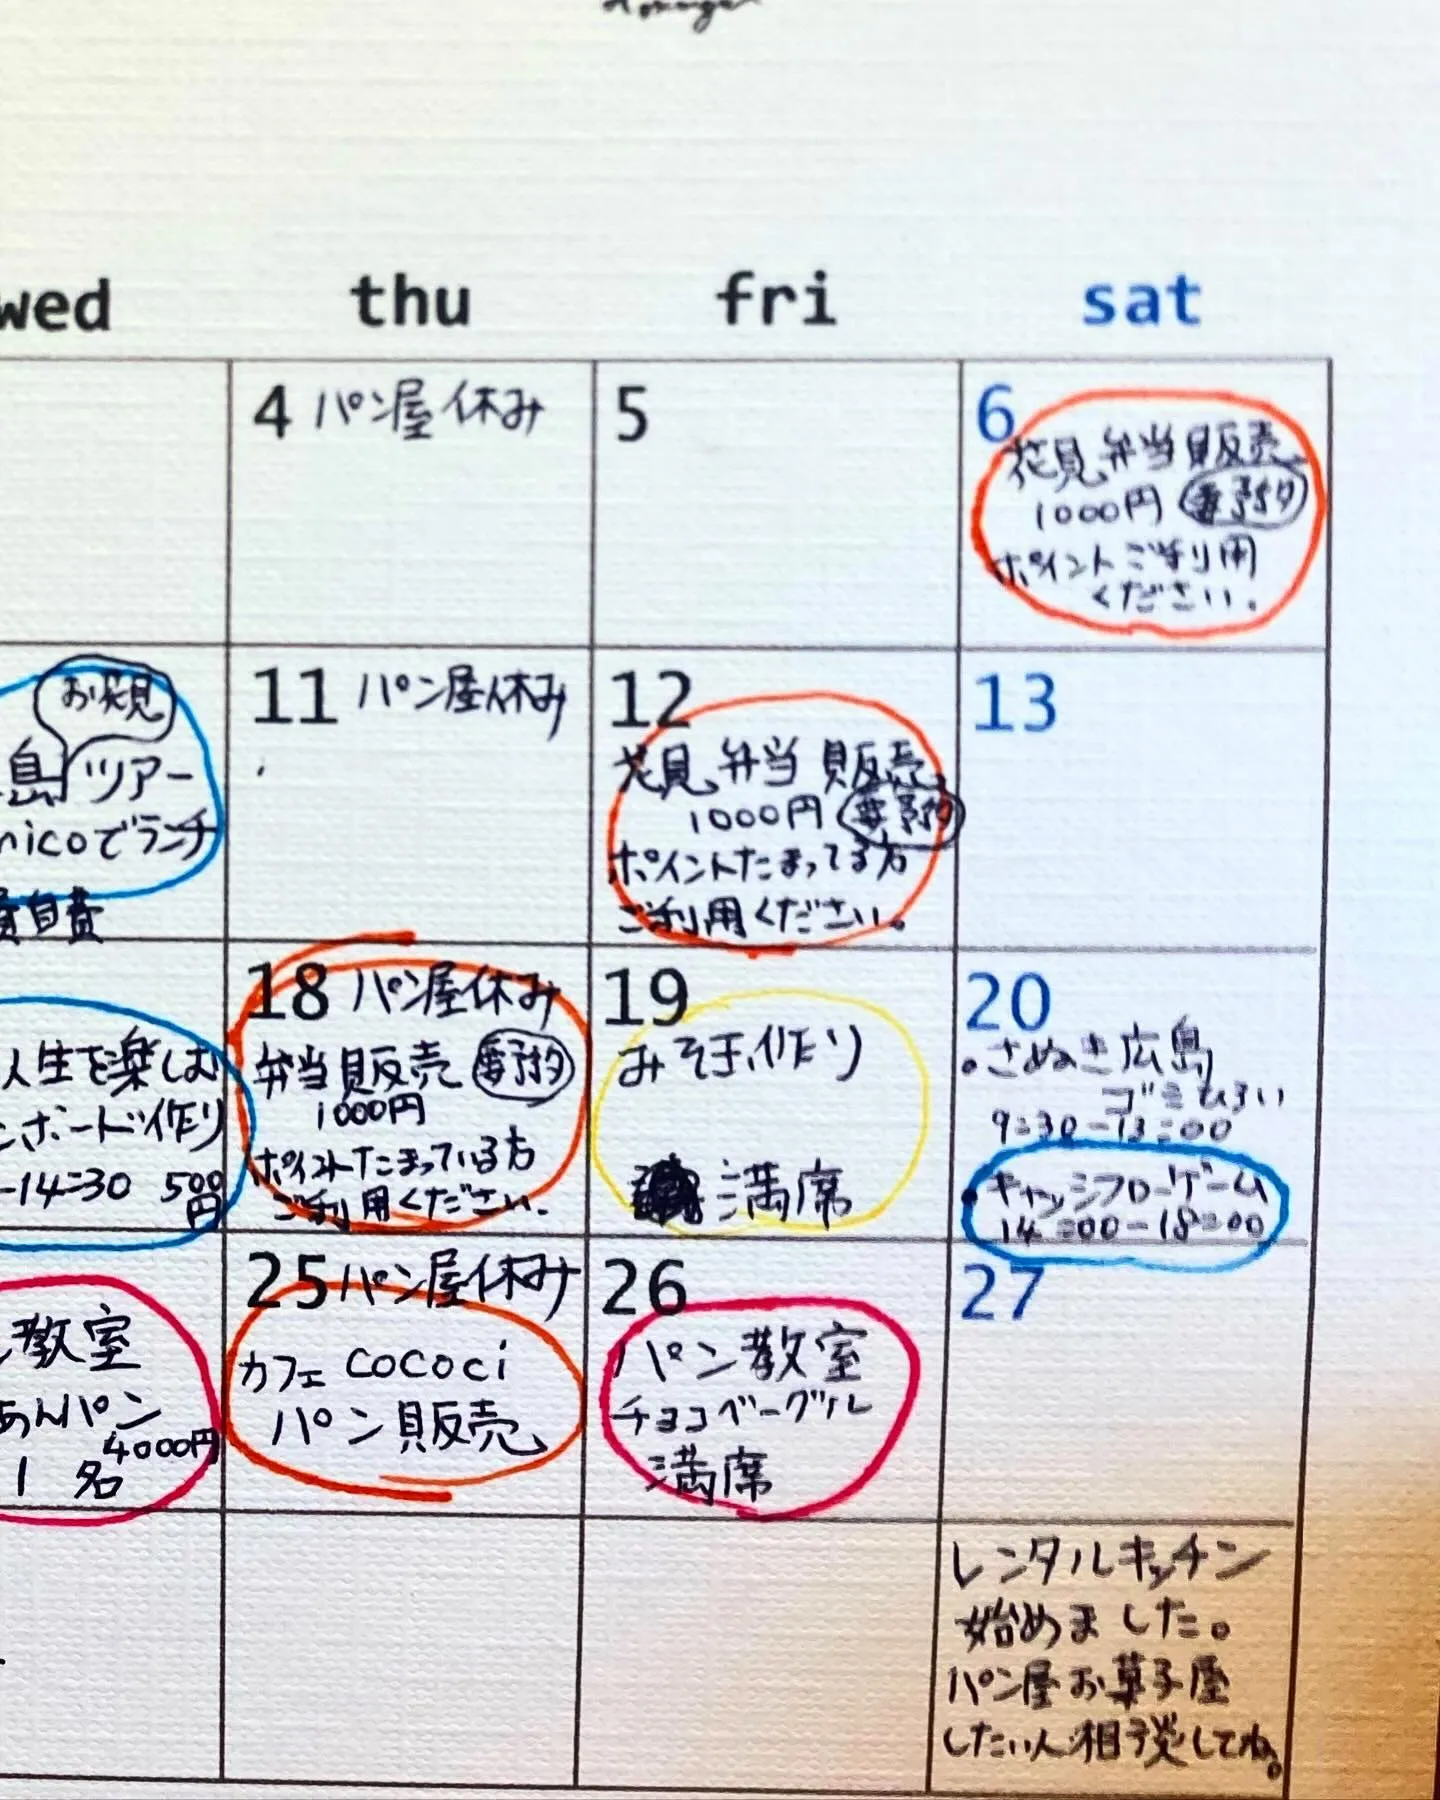 wed thu fri sat
4 パン屋休み
5
6
花見弁当販売
1000円 要予約
ポイントご利用
ください。
お花見
島ツアー
nicoでランチ
費自費
11 パン屋休み
12
花見弁当販売
1000円 要予約
ポイントたまってる方
ご利用ください。
13
人生を楽しむ
ボード作り
-14:30 500
円
18 パン屋休み
弁当販売 要予約
1000円
ポイントたまっている方
ご利用ください。
19
みそ玉作り
満席
20
・さぬき広島
ゴミひろい
9:30-13:00
・キャッシュフローゲーム
14:00-18:00
教室
あんパン
4000円
1名
25 パン屋休み
カフェ cococi
パン販売
26
パン教室
チョコベーグル
満席
27
レンタルキッチン
始めました。
パン屋お菓子屋
したい人相談してね。